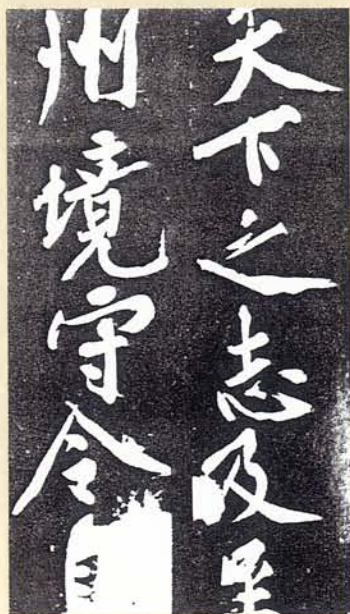 天下之志及至
州境守令